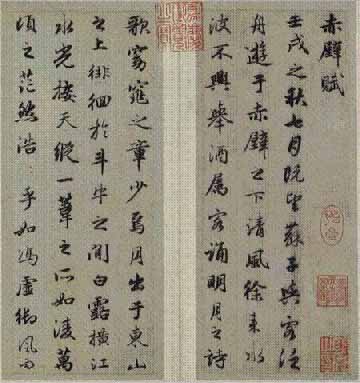 赤壁賦
壬戌之秋七月既望蘇子與客泛
舟遊于赤壁之下清風徐来水
波不興舉酒属客誦明月之詩
歌窈窕之章少焉月出于東山
之上徘徊於斗牛之間白露横江
水光接天縱一葦之所如凌萬
頃之茫然浩乎如馮虚御風而